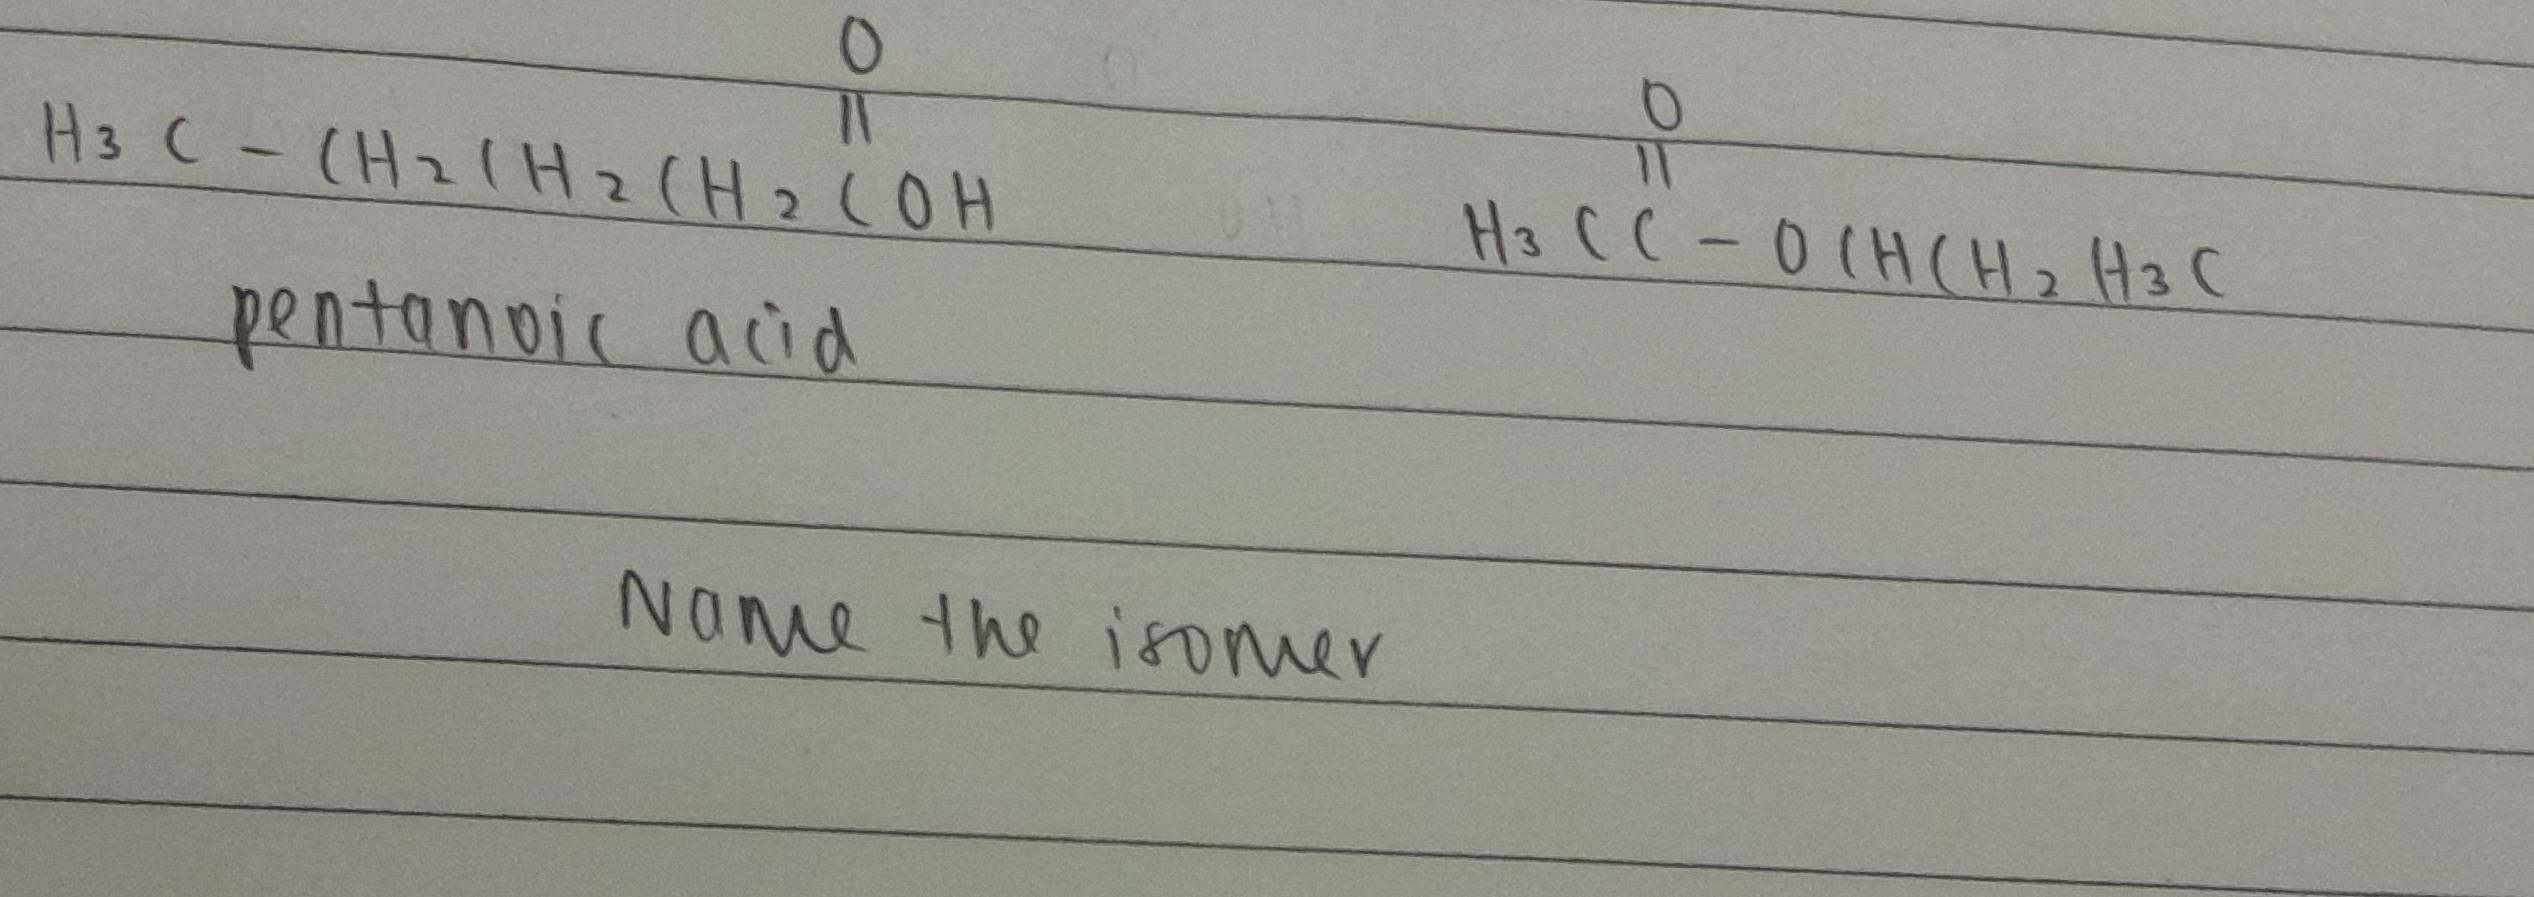 O
||
H3C-CH2CH2CH2COH
pentanoic acid
O
||
H3CC-OCHCH2H3C
Name the isomer